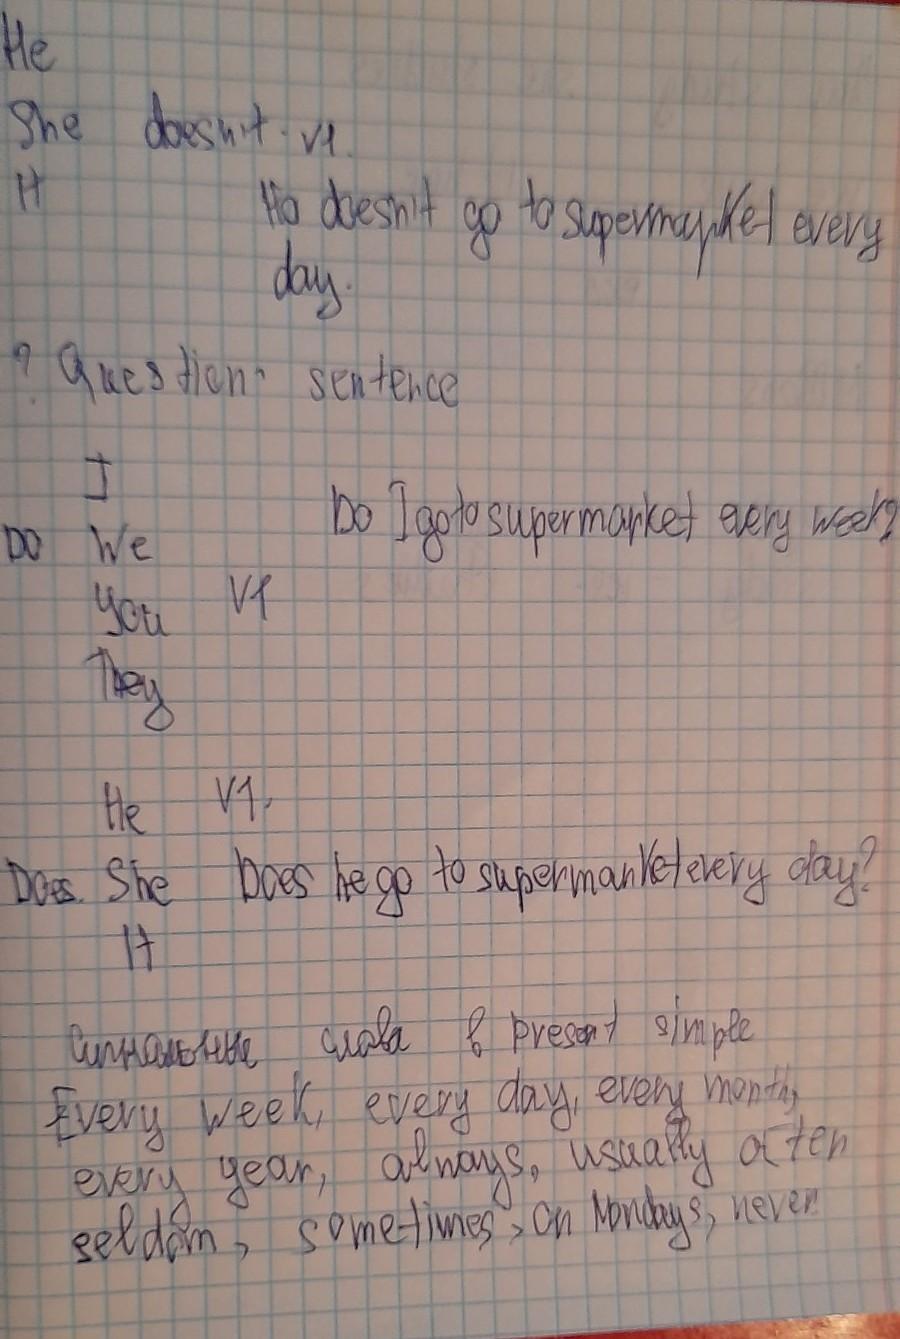 He
She doesn't. V1.
It
Ho doesn't go to supermarket every
day.
? Question: sentence
I
Do I go to supermarket every week?
Do We
You V1
They
He V1.
Does. She Does he go to supermarket every day?
It
Сигнальные слова в present simple
Every week, every day, every month,
every year, always, usually often
seldom, sometimes, on Mondays, never